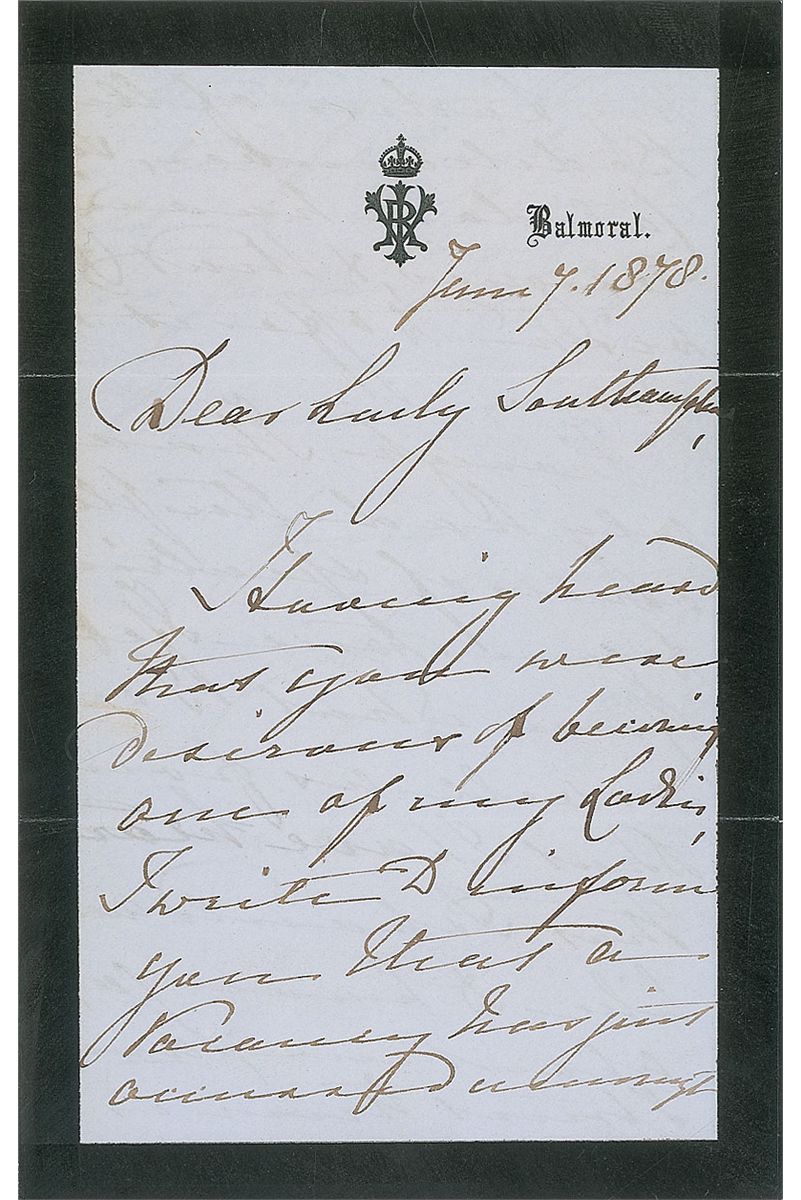 VRI
Balmoral.
June 7. 1878.
Dear Lady Southampton,
Having heard
that you were
desirous of becoming
one of my Ladies,
I write to inform
you that a
Vacancy has just
occurred amongst